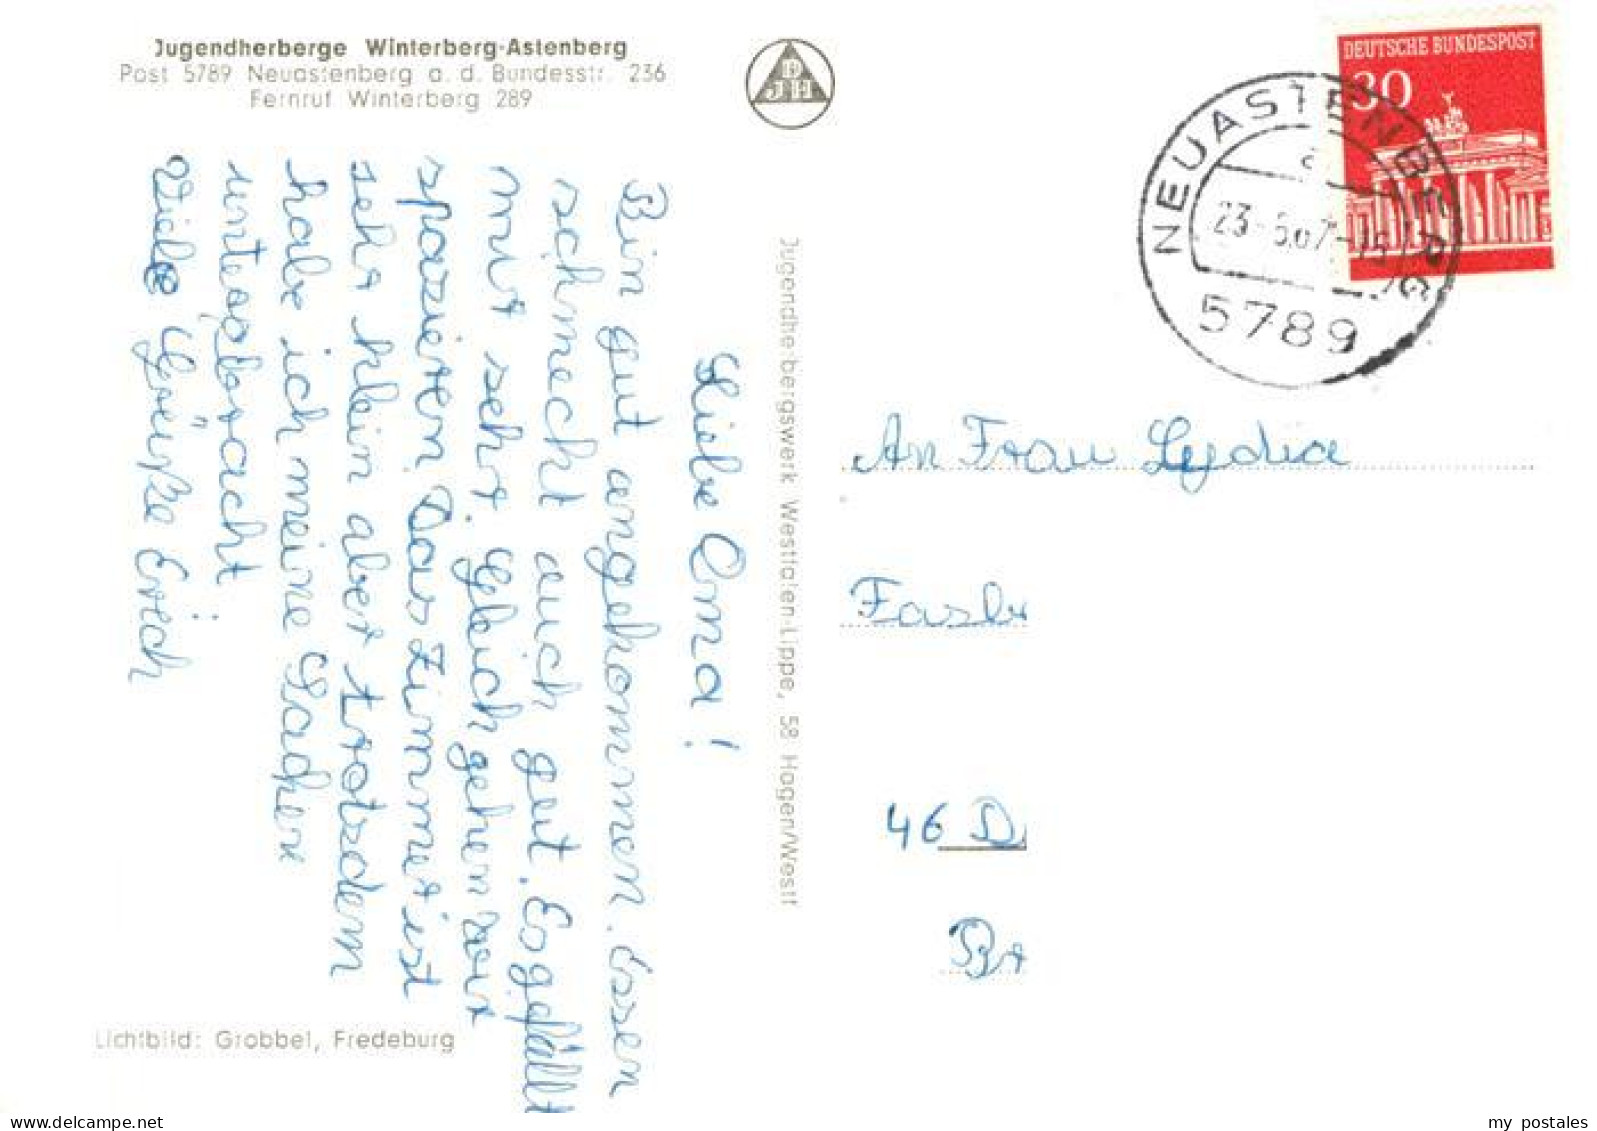 Jugendherberge Winterberg-Astenberg
Post 5789 Neuastenberg a. d. Bundesstr. 236
Fernruf Winterberg 289
DJH
DEUTSCHE BUNDESPOST
30
NEUASTENBERG
a
5789
Liebe Oma!
Bin gut angekommen. Essen
schmeckt auch gut. Es gefällt
mir sehr. Gleich gehen wir
spazieren Das Zimmer ist
sehr klein aber trotzdem
habe ich meine Sachen
untergebracht
Viele Grüße Erich
Jugendherbergswerk Westfalen-Lippe, 58 Hagen/Westf
An Frau Lydia
46 D
Lichtbild: Grobbel, Fredeburg
my_postales